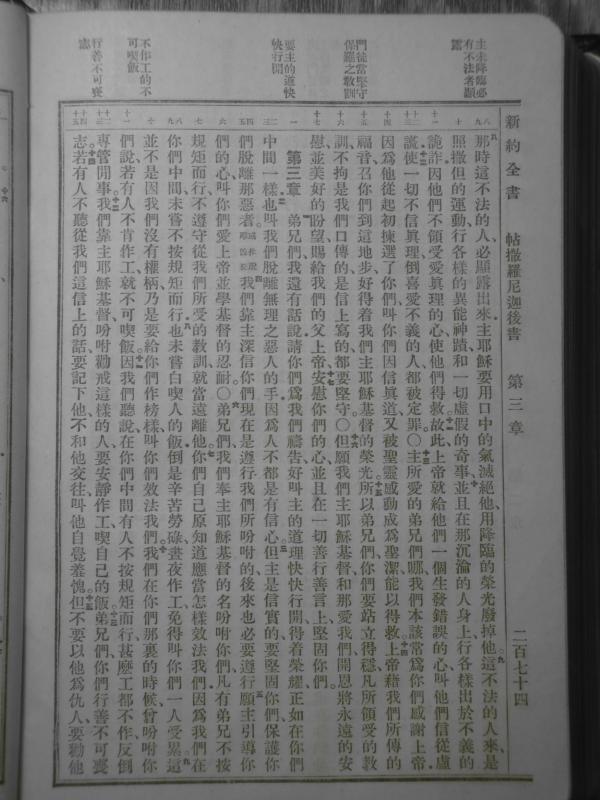 主未降臨必
有不法者顯
露
門徒當堅守
保羅之教訓
要主的道快
快行開
不作工的不
可喫飯
行善不可喪
志
新約全書 帖撒羅尼迦後書 第三章 二百七十四
那時這不法的人必顯露出來、主耶穌要用口中的氣滅絕他、用降臨的榮光廢掉他、這不法的人來、是
照撒但的運動、行各樣的異能神蹟、和一切虛假的奇事、並且在那沉淪的人身上、行各樣出於不義的
詭詐、因他們不領受愛真理的心、使他們得救、故此上帝就給他們一個生發錯誤的心、叫他們信從虛
謊、使一切不信真理倒喜愛不義的人、都被定罪○主所愛的弟兄們哪、我們本該常爲你們感謝上帝、
因爲他從起初揀選了你們、叫你們因信真道、又被聖靈感動成爲聖潔、能以得救、上帝藉我們所傳的
福音、召你們到這地步、好得着我們主耶穌基督的榮光、所以弟兄們、你們要站立得穩、凡所領受的教
訓、不拘是我們口傳的、是信上寫的、都要堅守○但願我們主耶穌基督、和那愛我們、開恩將永遠的安
慰、並美好的盼望、賜給我們的父上帝、安慰你們的心、並且在一切善行善言上、堅固你們。
第三章 弟兄們、我還有話說、請你們爲我們禱告、好叫主的道理快快行開、得着榮耀、正如在你們
中間一樣、也叫我們脫離無理之惡人的手、因爲人不都是有信心、但主是信實的、要堅固你們、保護你
們脫離那惡者、我們靠主深信你們現在是遵行我們所吩咐的、後來也必要遵行、願主引導你
們的心、叫你們愛上帝、並學基督的忍耐○弟兄們、我們奉主耶穌基督的名吩咐你們、凡有弟兄不按
規矩而行、不遵守從我們所受的教訓、就當遠離他、你們自己原知道應當怎樣效法我們、因爲我們在
你們中間、未嘗不按規矩而行、也未嘗白喫人的飯、倒是辛苦勞碌、晝夜作工、免得叫你們一人受累、這
並不是因我們沒有權柄、乃是要給你們作榜樣、叫你們效法我們、我們在你們那裏的時候、曾吩咐你
們說、若有人不肯作工、就不可喫飯、因我們聽說、在你們中間有人不按規矩而行、甚麼工都不作、反倒
專管閒事、我們靠主耶穌基督、吩咐勸戒這樣的人、要安靜作工、喫自己的飯、弟兄們、你們行善不可喪
志、若有人不聽從我們這信上的話、要記下他、不和他交往、叫他自覺羞愧、但不要以他爲仇人、要勸他